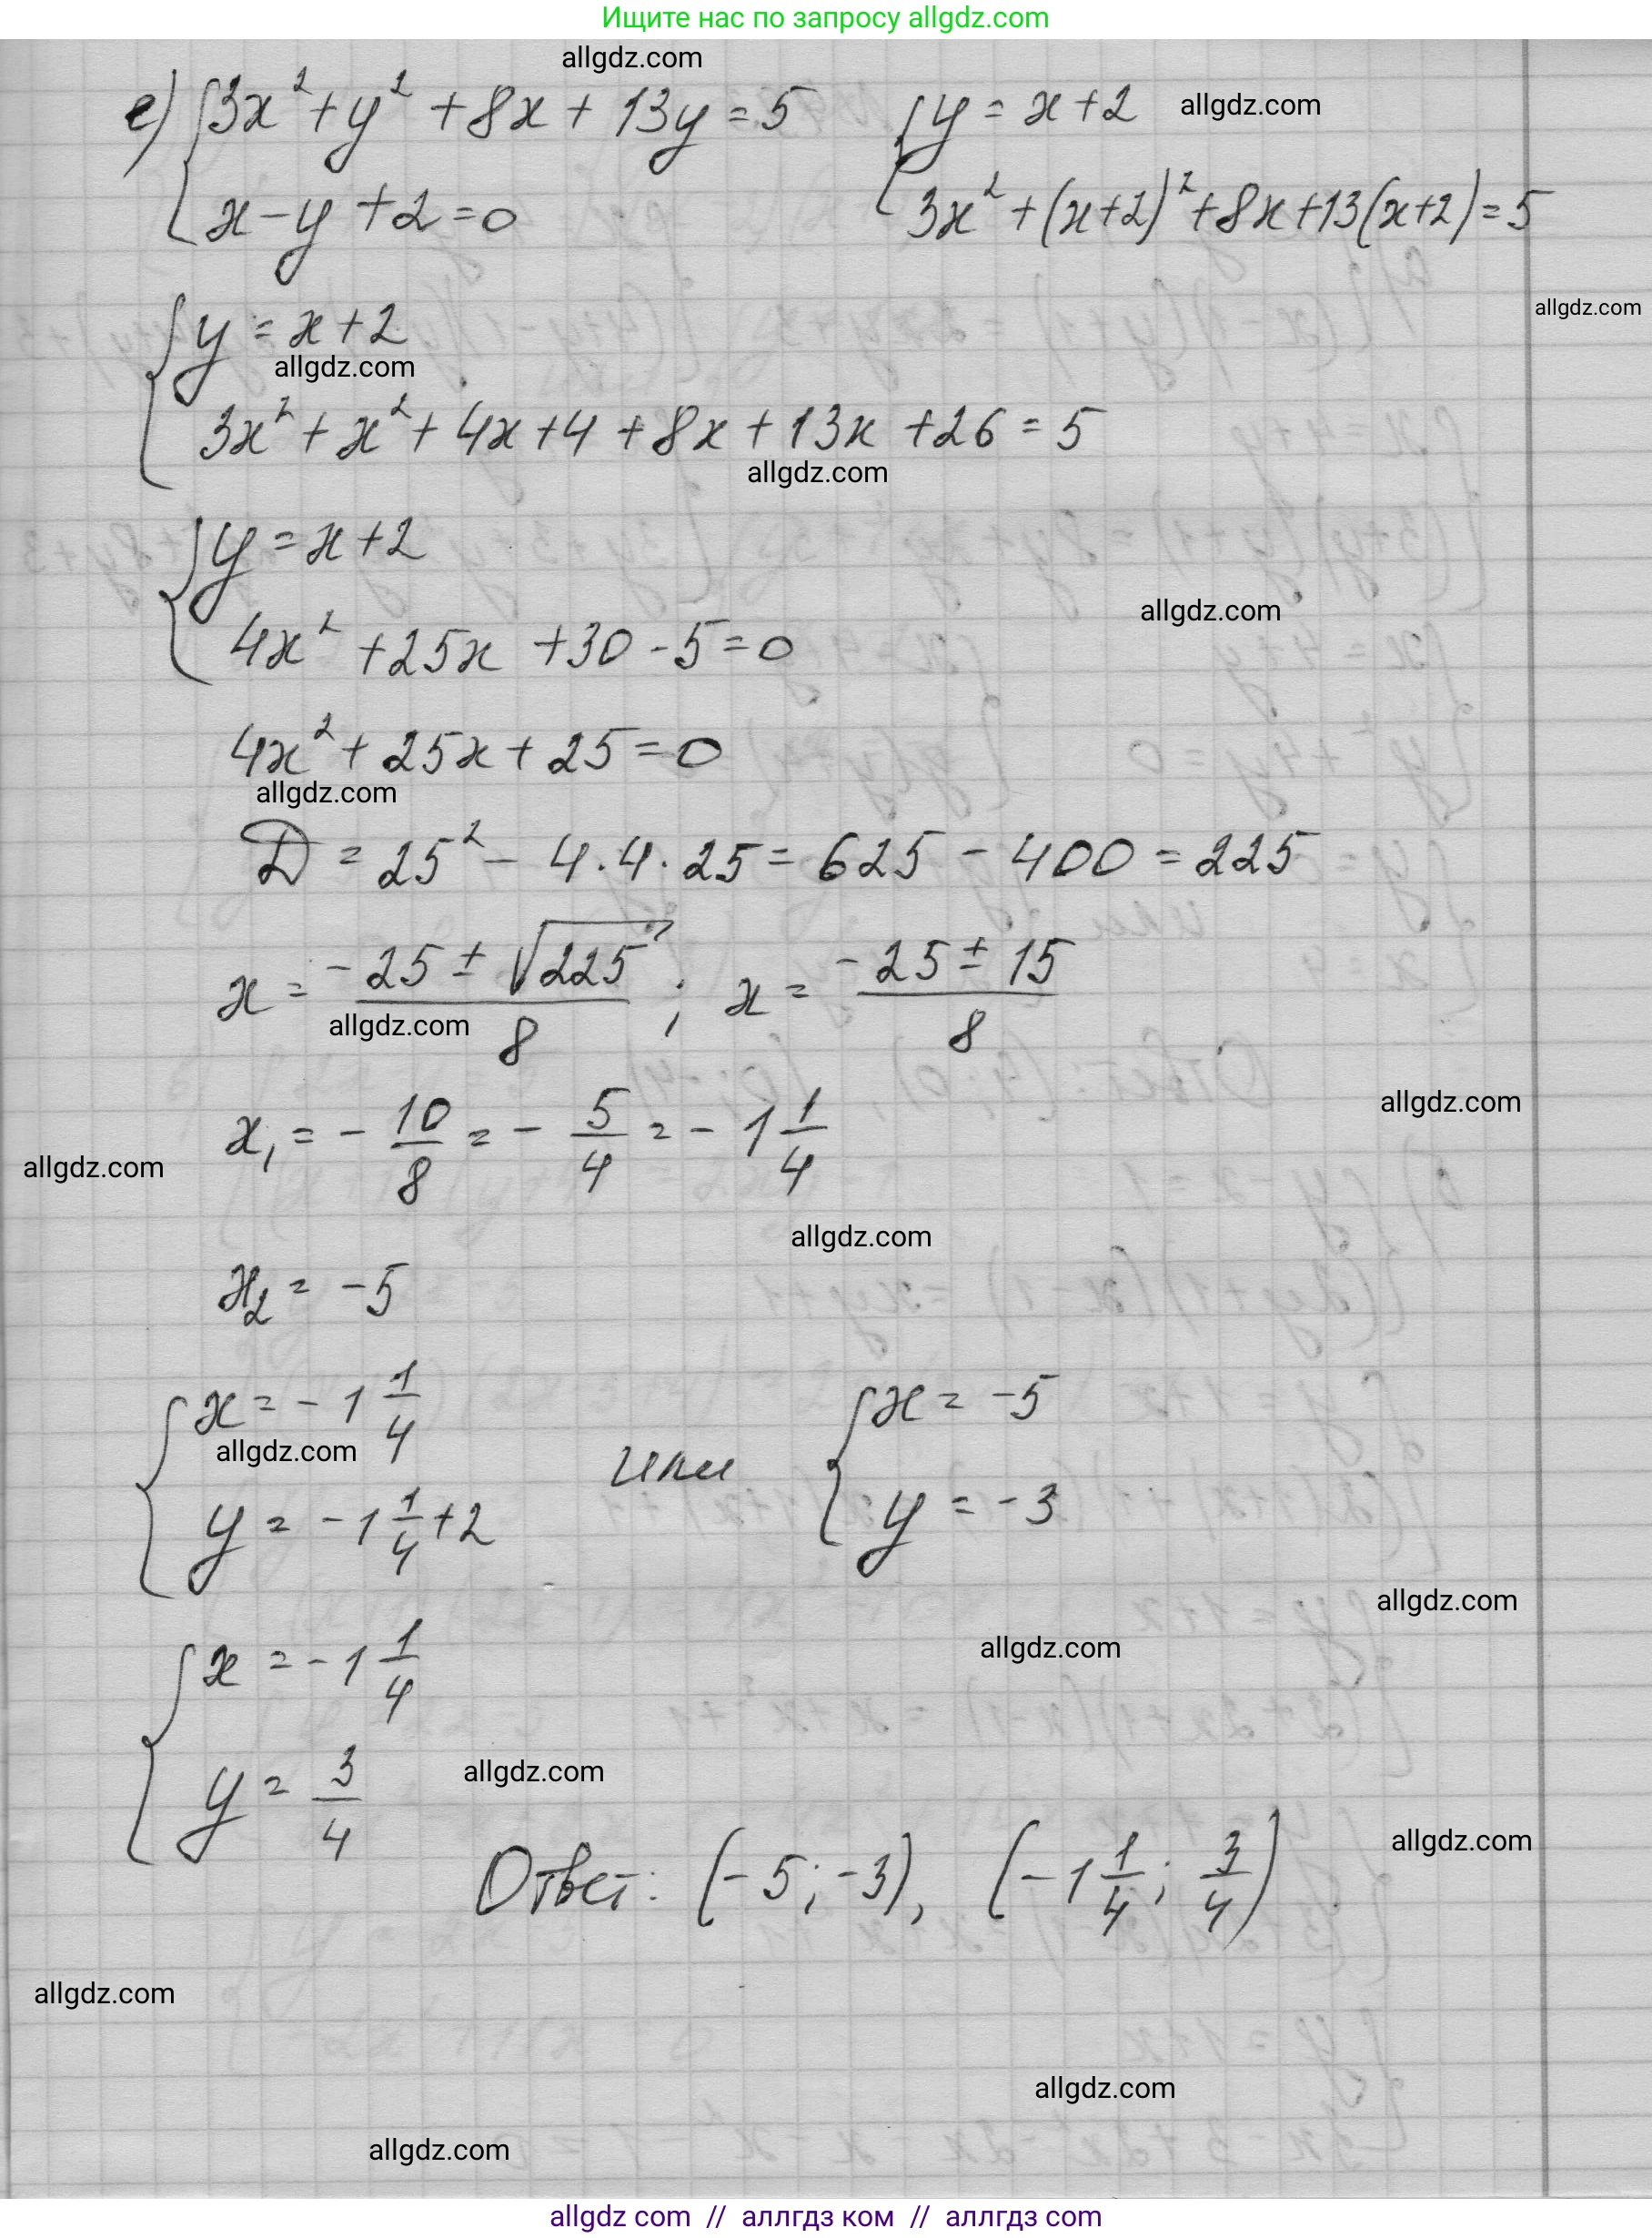 Ищите нас по запросу allgdz.com
allgdz.com
е) { 3x² + y² + 8x + 13y = 5    { y = x + 2    allgdz.com
x - y + 2 = 0    3x² + (x+2)² + 8x + 13(x+2) = 5
allgdz.com
{ y = x + 2
allgdz.com
3x² + x² + 4x + 4 + 8x + 13x + 26 = 5
allgdz.com
{ y = x + 2
allgdz.com
4x² + 25x + 30 - 5 = 0
4x² + 25x + 25 = 0
allgdz.com
D = 25² - 4 · 4 · 25 = 625 - 400 = 225
x = (-25 ± √225)/8 ; x = (-25 ± 15)/8
allgdz.com
allgdz.com
x₁ = - 10/8 = - 5/4 = - 1 1/4
allgdz.com
allgdz.com
x₂ = -5
{ x = - 1 1/4    { x = -5
allgdz.com
или
y = - 1 1/4 + 2    y = -3
allgdz.com
allgdz.com
{ x = - 1 1/4
allgdz.com
y = 3/4
allgdz.com
Ответ: (-5; -3), (-1 1/4; 3/4)
allgdz.com
allgdz.com
allgdz.com
allgdz com // аллгдз ком // аллгдз com